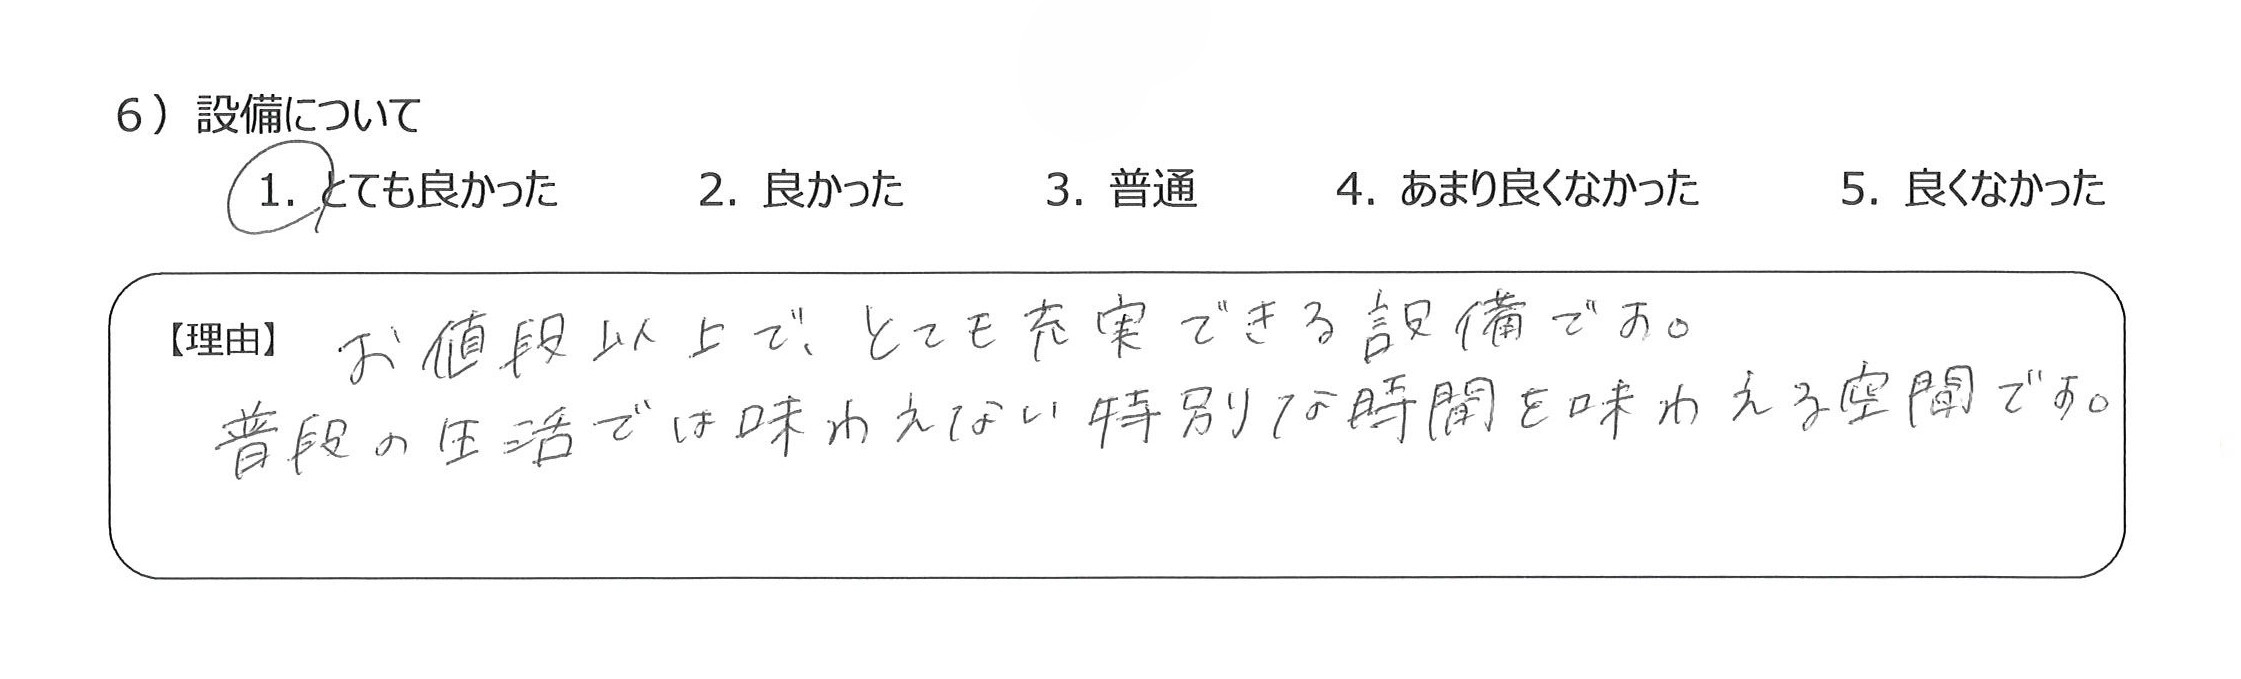 6）設備について
1. とても良かった 2. 良かった 3. 普通 4. あまり良くなかった 5. 良くなかった
【理由】 お値段以上で、とても充実できる設備です。
普段の生活では味わえない特別な時間を味わえる空間です。